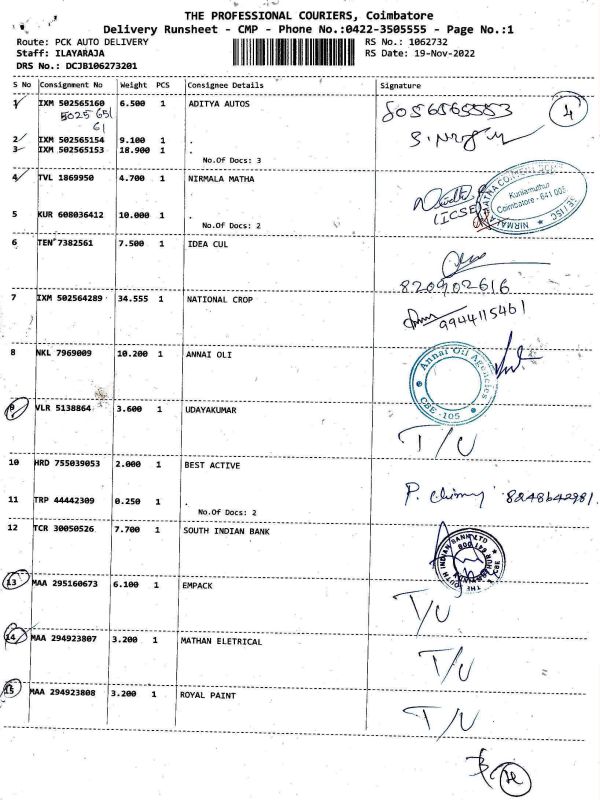 THE PROFESSIONAL COURIERS, Coimbatore
Delivery Runsheet - CMP - Phone No.:0422-3505555 - Page No.:1
Route: PCK AUTO DELIVERY RS No.: 1062732
Staff: ILAYARAJA RS Date: 19-Nov-2022
DRS No.: DCJB106273201
S No Consignment No Weight PCS Consignee Details Signature
1 IXM 502565160 6.500 1 ADITYA AUTOS 8056565553 4
5025 651
61
2 IXM 502565154 9.100 1 .
3 IXM 502565153 18.900 1 .
No.Of Docs: 3
4 TVL 1869950 4.700 1 NIRMALA MATHA
(ICSE)
NIRMALA MATHA CONVENT Kuniamuthur Coimbatore - 641 008
5 KUR 608036412 10.000 1 .
No.Of Docs: 2
6 TEN 7382561 7.500 1 IDEA CUL
820902616
7 IXM 502564289 34.555 1 NATIONAL CROP 9944115461
8 NKL 7969009 10.200 1 ANNAI OLI
Annai Oil Agencies CBE -105
9 VLR 5138864 3.600 1 UDAYAKUMAR T/U
10 HRD 755039053 2.000 1 BEST ACTIVE
11 TRP 44442309 0.250 1 . 8248642981
No.Of Docs: 2
12 TCR 30050526 7.700 1 SOUTH INDIAN BANK
THE SOUTH INDIAN BANK LTD CBE
13 MAA 295160673 6.100 1 EMPACK T/U
14 MAA 294923807 3.200 1 MATHAN ELETRICAL T/U
15 MAA 294923808 3.200 1 ROYAL PAINT T/U